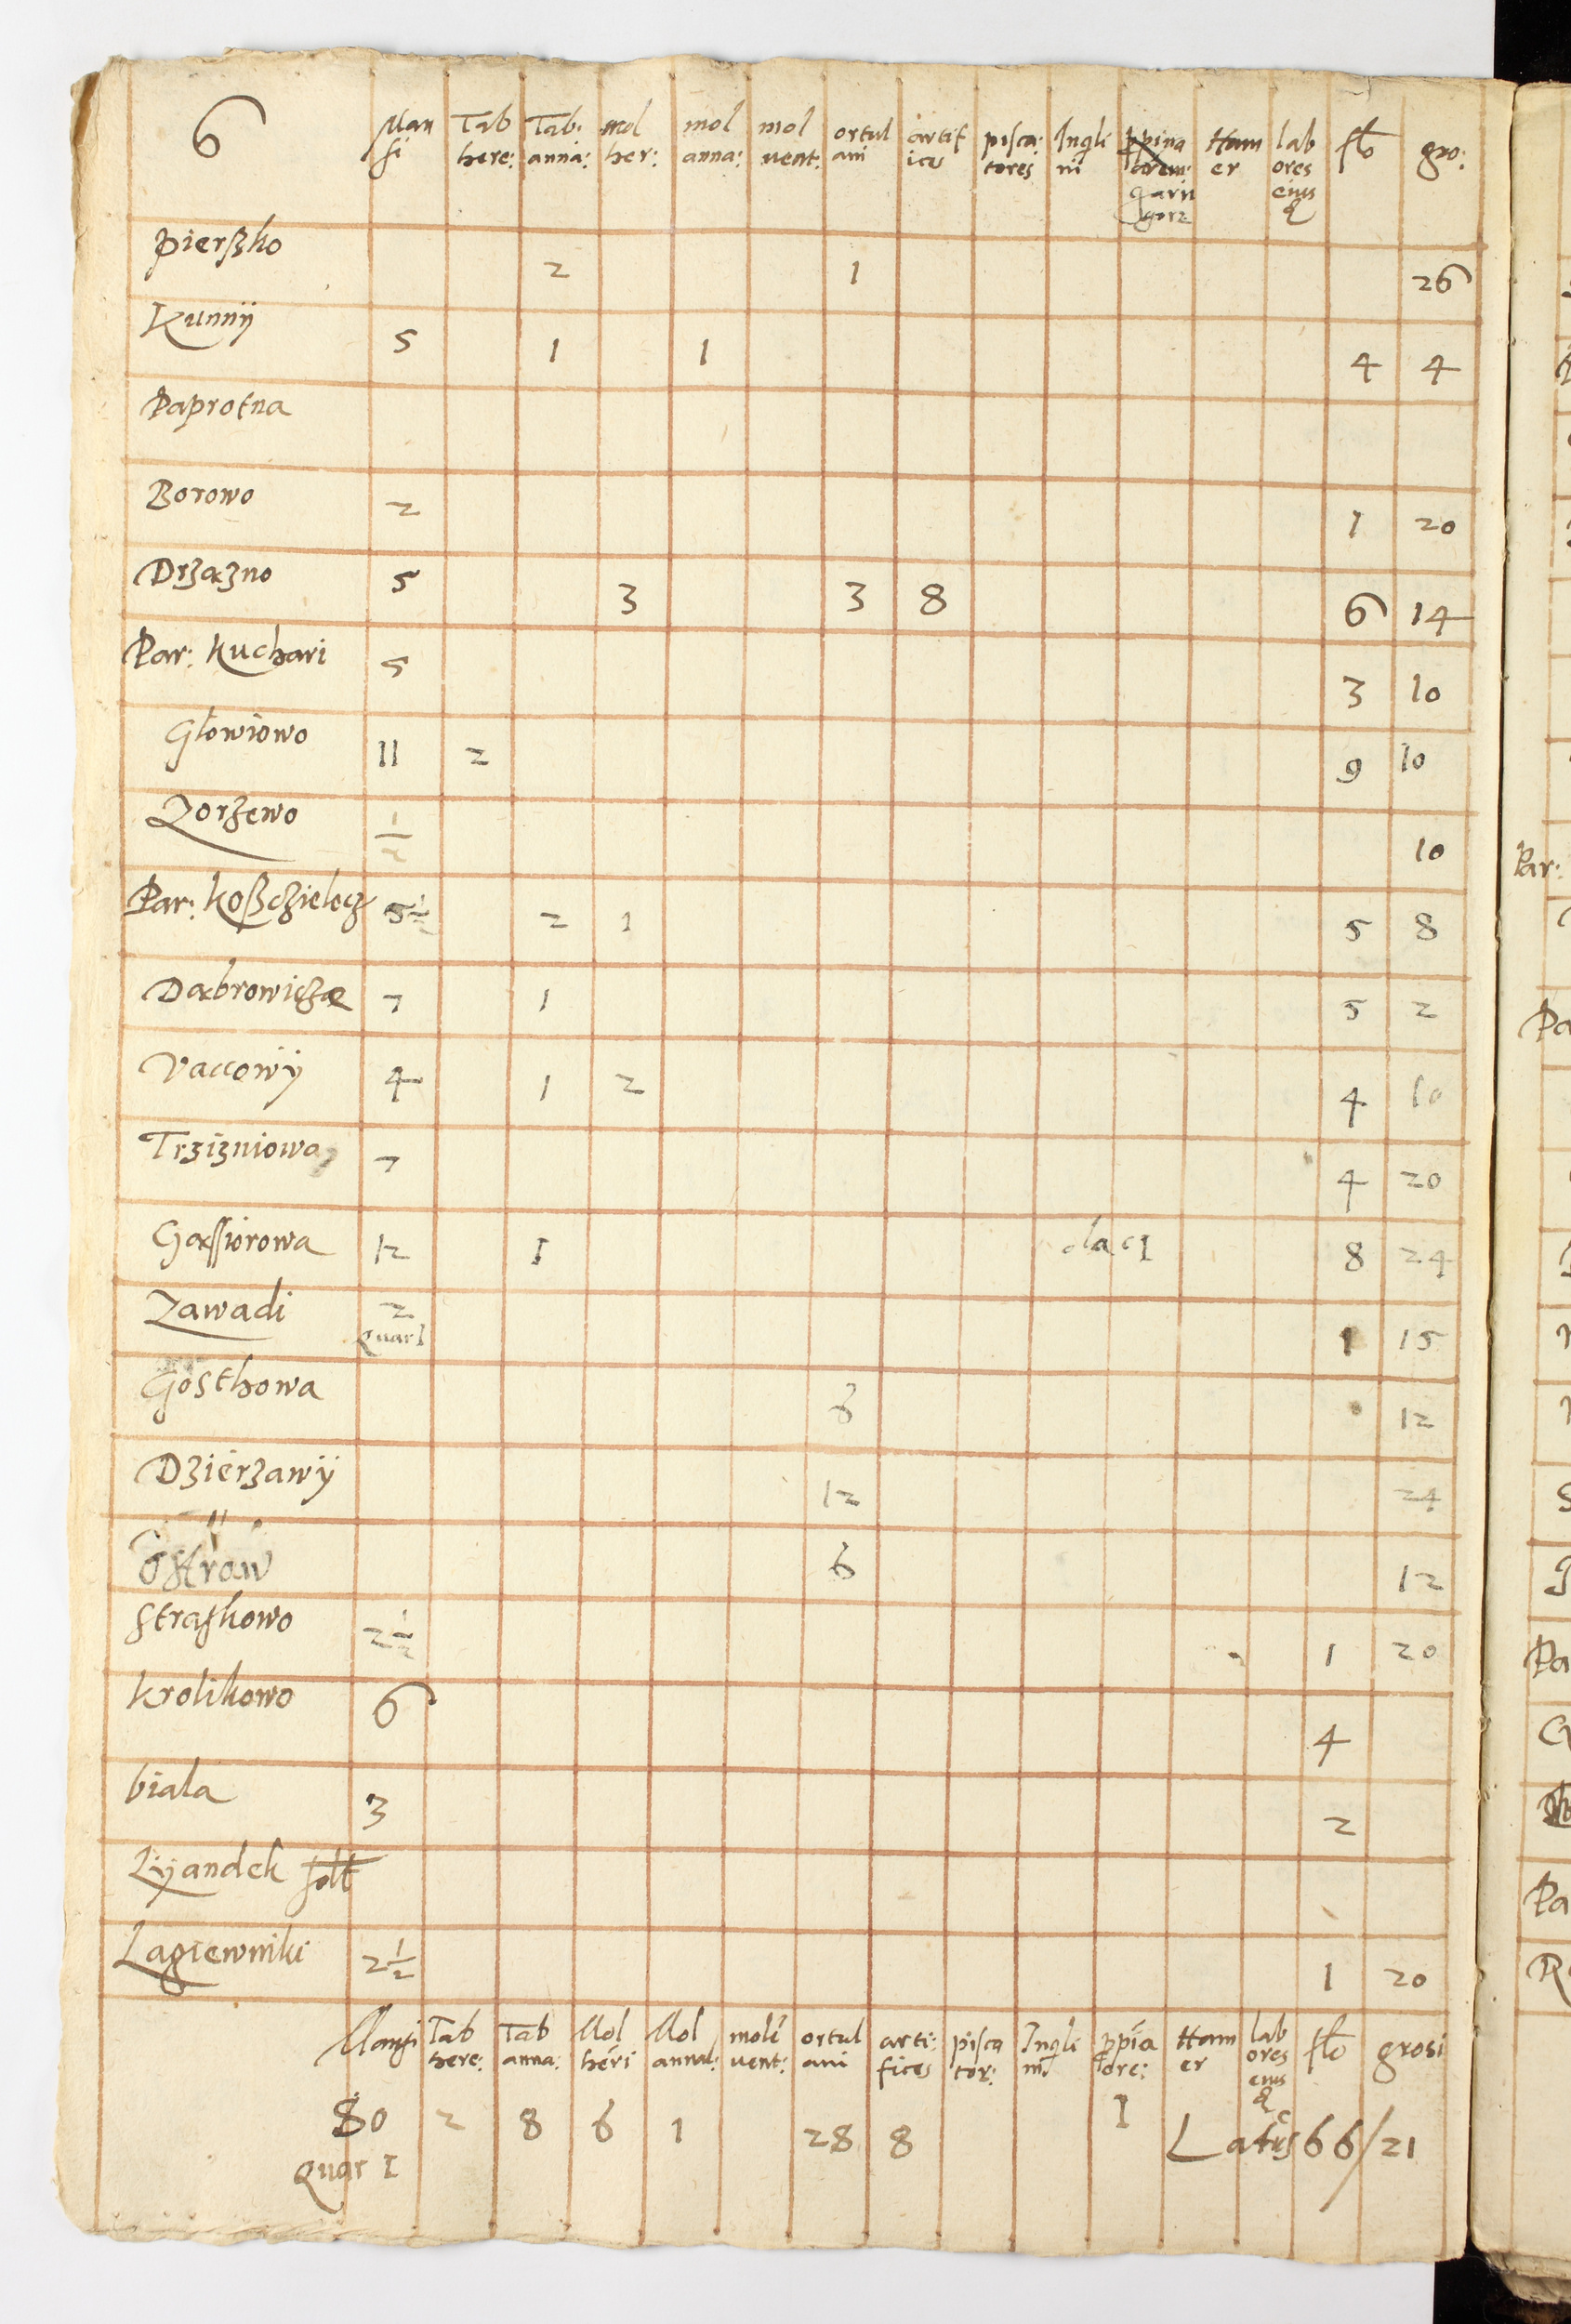 6 Man si Tab here: Tab: anna: mol her: mol anna: mol vent: ortul ani artif ices pisca: tores Inqli ni Ham er lab ores eius flo gro:
Pierßko 2 1 26
Kunny 5 1 1 4 4
Paprotna
Borowo 2 1 20
Drzazno 5 3 3 8 6 14
Par: Kuchari 5 3 10
Głowiowo 11 2 9 10
Zorzewo 1/2 10
Par: Koßczielecz 5 1/2 2 1 5 8
Dąbrowicze 7 1 5 2
Vaccowy 4 1 2 4 10
Trzizniowa 7 4 20
Gąssiorowa 12 1 I 8 24
Zawadi 2 Quar I 1 15
Gosthowa 6 12
Dzierzawy 12 24
Ostrow 6 12
Straskowo 2 1/2 1 20
Krolikowo 6 4
biala 3 2
Lyandek solt
Lagiewniki 2 1/2 1 20
Mansi Tab here: Tab anna: Mol heri Mol annal: moli vent: ortul ani arti: fices pisca tor: Inqli ni ppīa tore: Ham er lab ores eius flo grosi
80 2 8 6 1 28 8 I Latus 66/21
Quar I
Par: